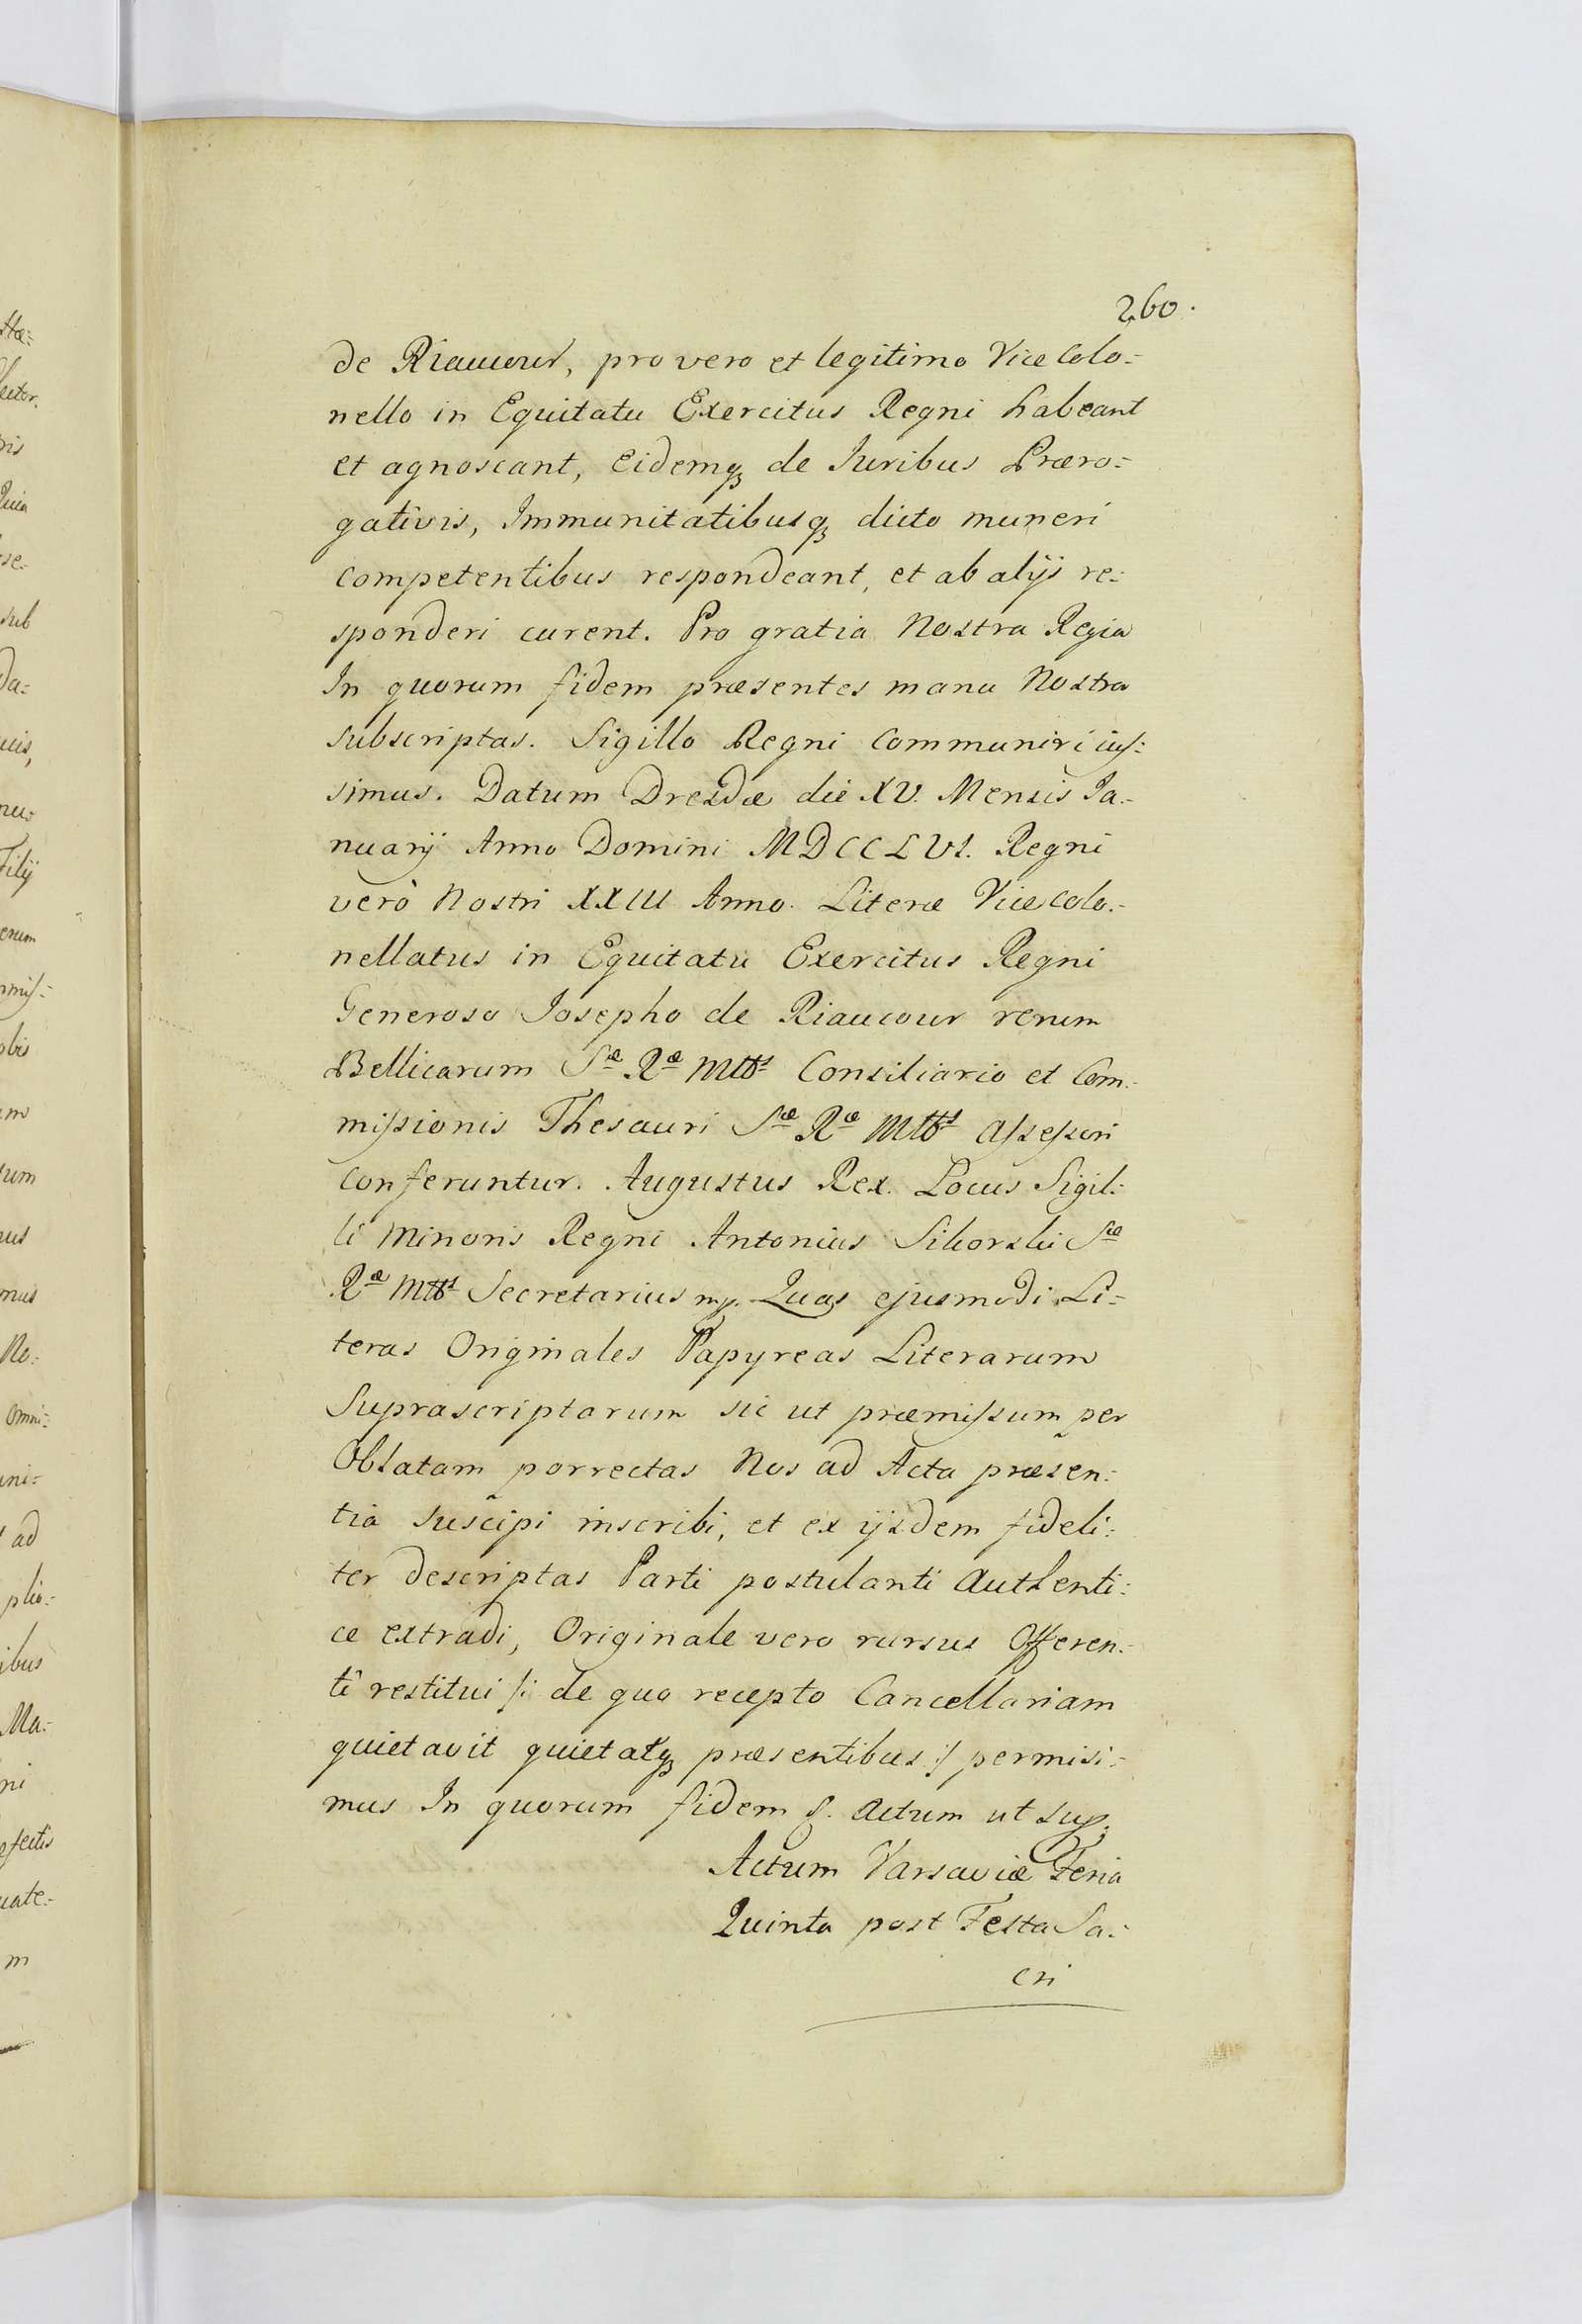 260.
de Riaucour, pro vero et legitimo Vice Colo:
nello in Equitatu Exercitus Regni habeant
et agnoscant, eidemq de Iuribus Præro:
gativis, Immunitatibusq dicto muneri
competentibus respondeant, et ab alijs re:
sponderi curent. Pro gratia Nostra Regia
In quorum fidem præsentes manu Nostra
subscriptas. Sigillo Regni Communiri ius:
simus. Datum Dresdæ die XV. Mensis Ja:
nuarij Anno Domini MDCCLVI. Regni
verò Nostri XXIII Anno. Literæ Vice Colo:
nellatus in Equitatu Exercitus Regni
Generoso Iosepho de Riaucour rerum
Bellicarum Sæ Ræ Mttis Consiliario et Com:
missionis Thesauri Sæ Ræ Mttis Assessori
conferuntur. Augustus Rex. Locus Sigil:
li Minoris Regni Antonius Sikorski Sæ
Ræ Mttis Secretarius mp. Quas ejusmodi Li:
teras Originales Papyreas Literarum
Suprascriptarum sic ut præmissum per
Oblatam porrectas Nos ad Acta præsen:
tia suscipi inscribi, et ex ijsdem fideli:
ter descriptas Parti postulanti authenti:
ce extradi, Originale vero rursus Offeren:
ti restitui /: de quo recepto Cancellariam
quietavit quietatq præsentibus :/ permisi:
mus In quorum fidem &. Actum ut sup.
Actum Varsaviæ Feria
Quinta post Festa Sa:
cri